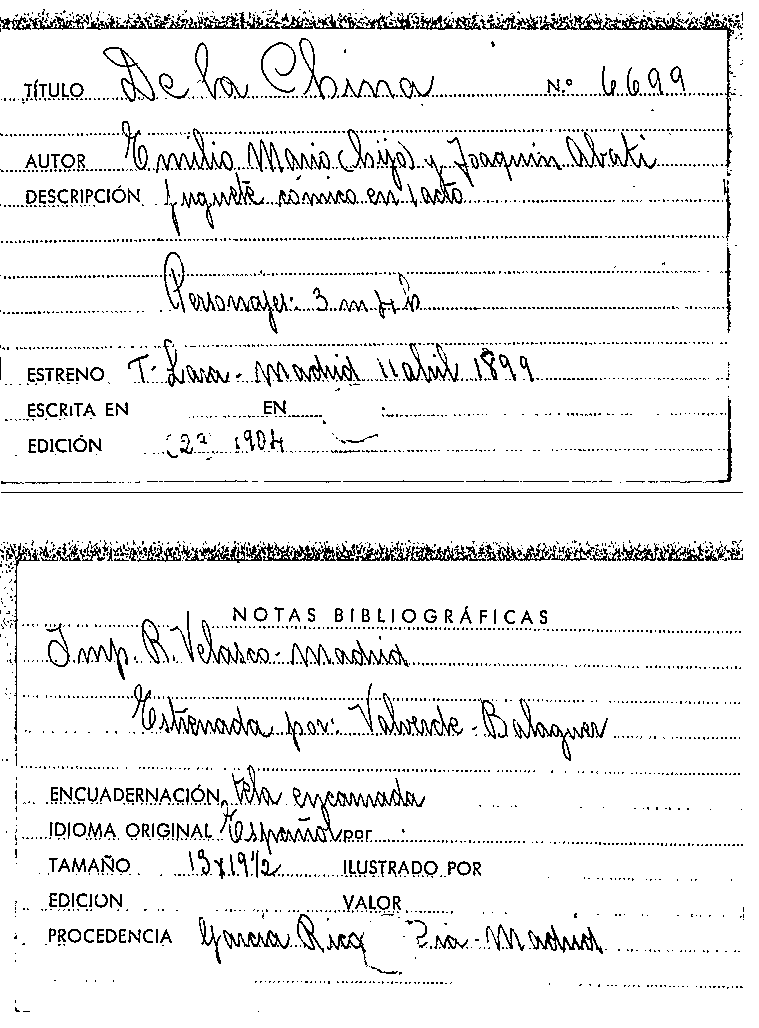 TÍTULO De la China N.º 6699
AUTOR Emilio Mario (hijo) y Joaquín Abati
DESCRIPCIÓN Juguete cómico en 1 acto
Personajes: 3 m 4 h
ESTRENO T. Lara - Madrid 11 abril 1899
ESCRITA EN EN
EDICIÓN 2ª 1904
NOTAS BIBLIOGRÁFICAS
Imp. R. Velasco - Madrid
Estrenada por: Valverde - Balaguer
ENCUADERNACIÓN tela encarnada
IDIOMA ORIGINAL Español por
TAMAÑO 13x19½ ILUSTRADO POR
EDICION VALOR
PROCEDENCIA García Rico Cía - Madrid